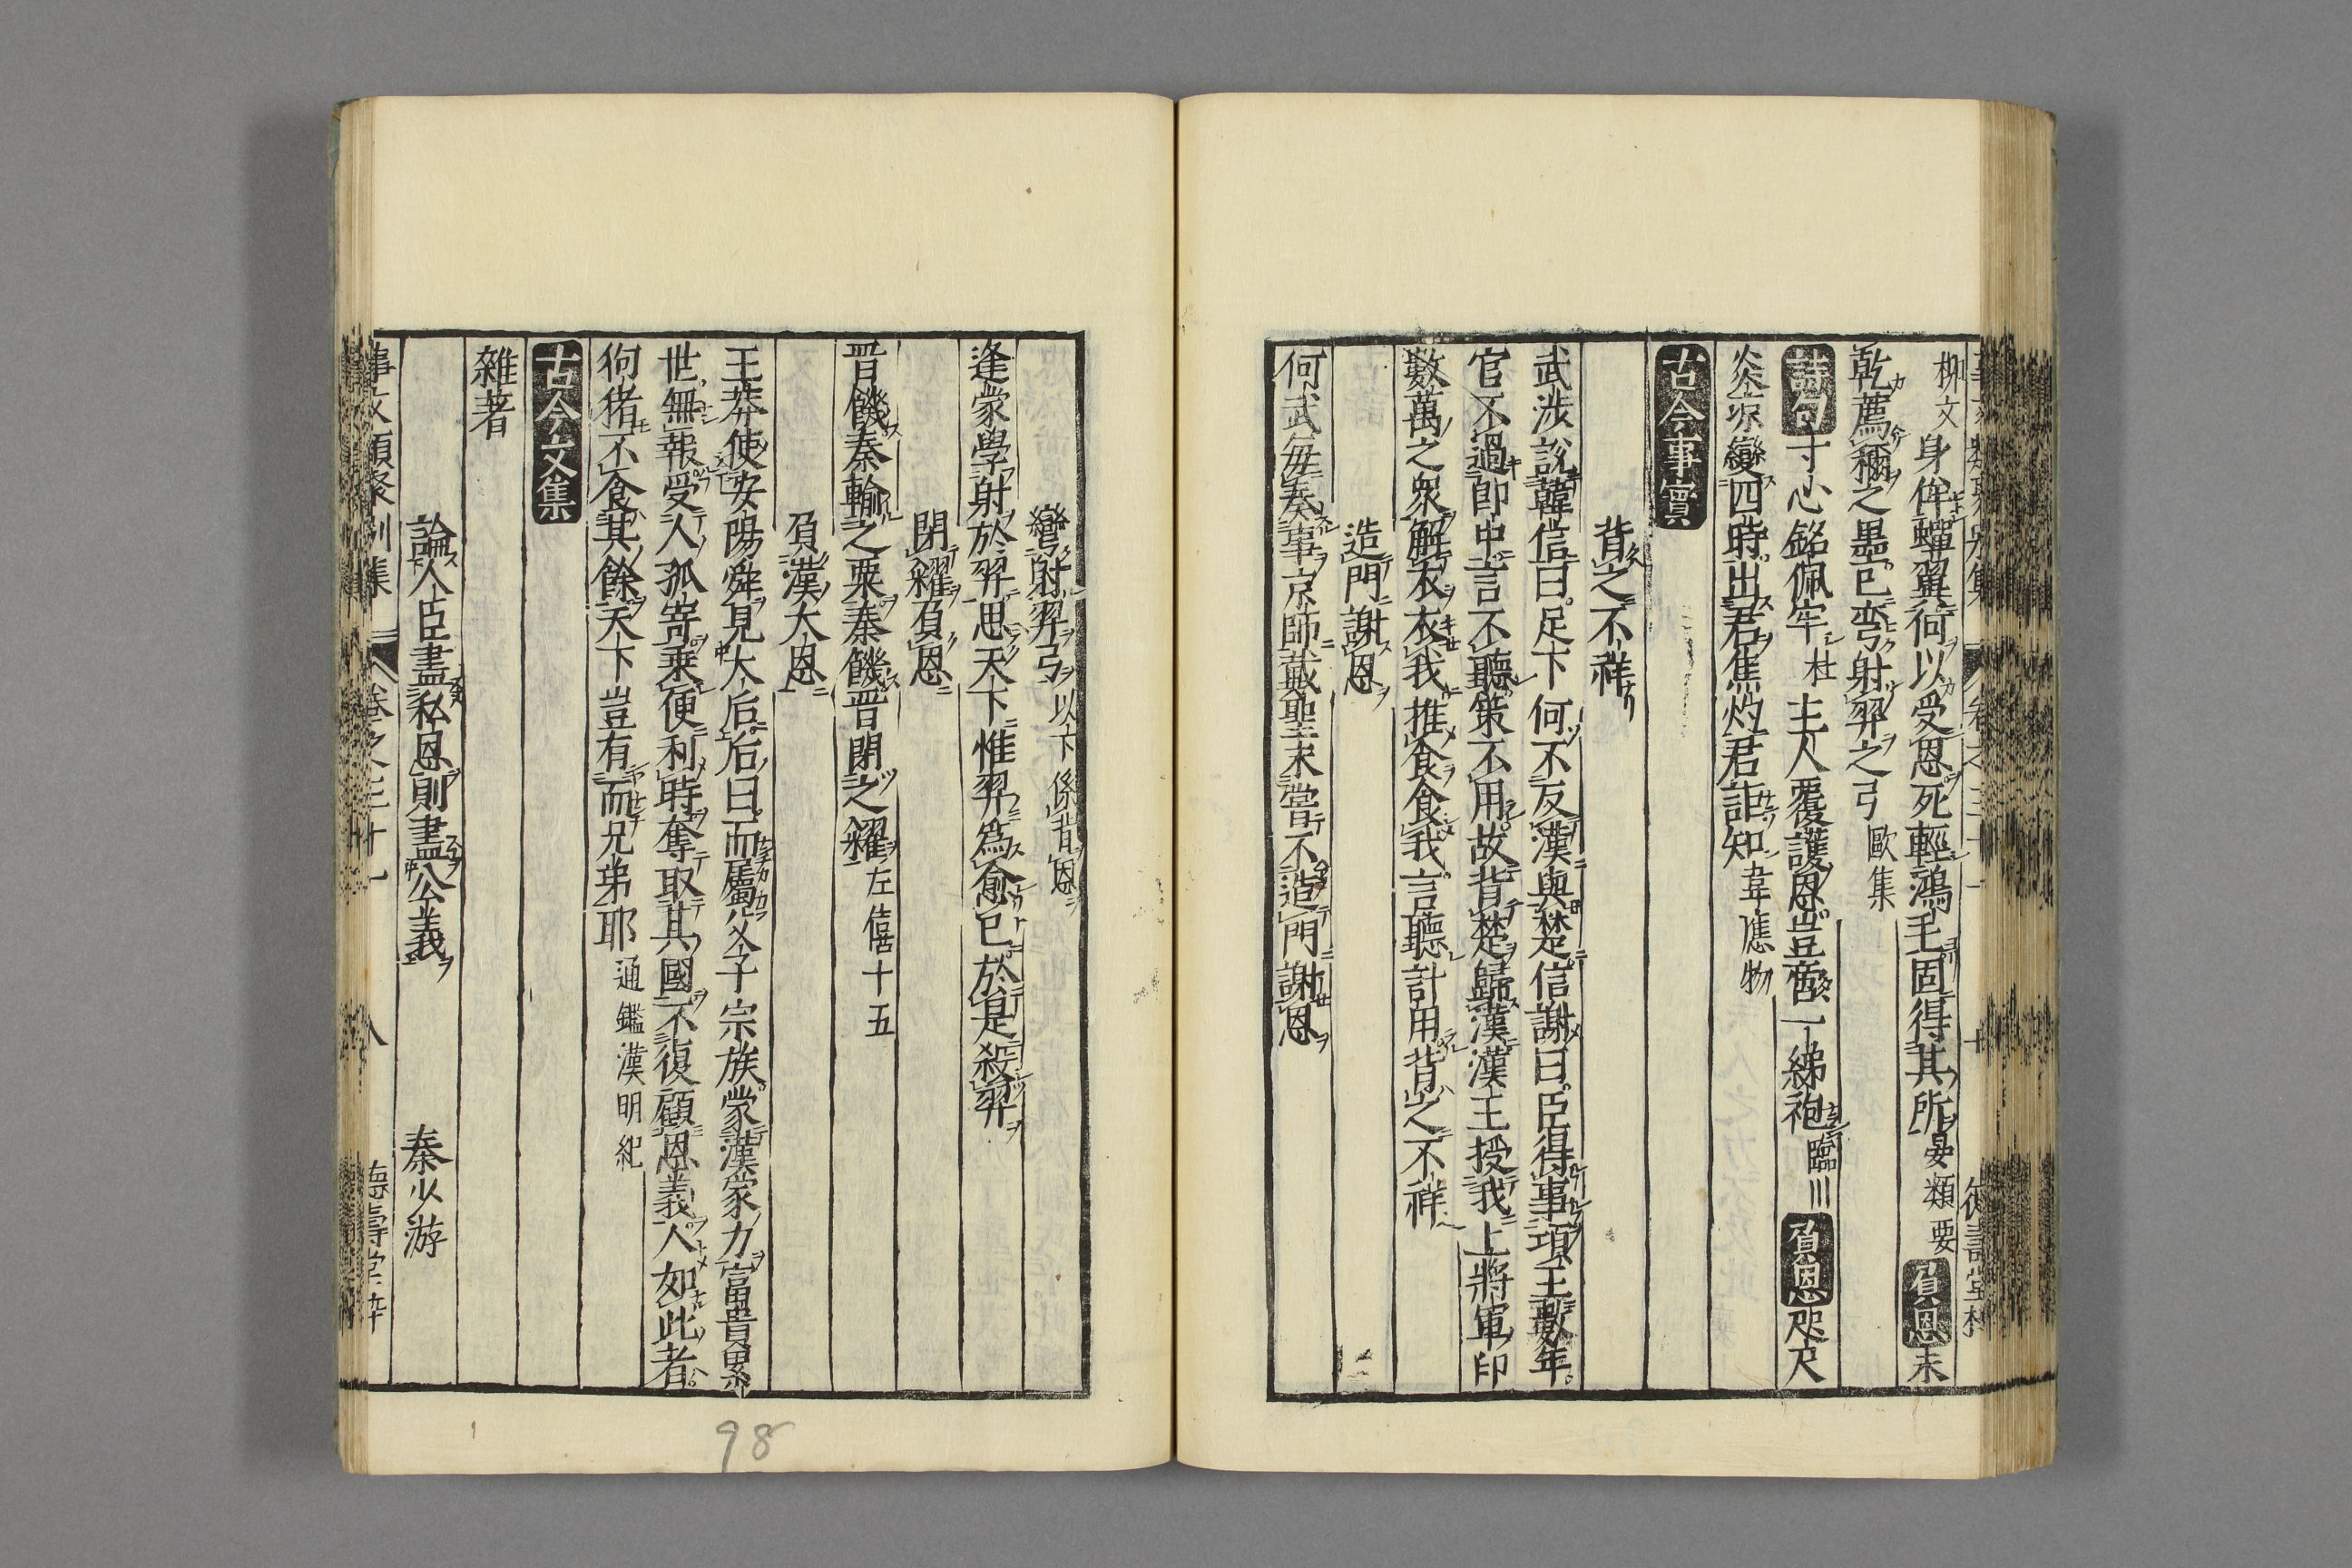 柳文身侔蟬翼何以受恩死輕鴻毛固得其所晏類要負恩未
乾薦禰之墨已彎射羿之弓歐集
詩句寸心銘佩牢杜主人覆護恩豈啻一綈袍臨川負恩咫尺
炎凉變四時出君焦灼君詎知韋應物
古今事實
背之不祥
武渉說韓信曰足下何不反漢與楚信謝曰臣得事項王數年
官不過郎中言不聽策不用故背楚歸漢漢王授我上將軍印
數萬之衆解衣衣我推食食我言聽計用背之不祥
造門謝恩
何武每奏事京師戴聖未嘗不造門謝恩
彎射羿弓以下係背恩
逄蒙學射於羿思天下惟羿爲愈己於是殺羿
閉糴負恩
晋饑秦輸之粟秦饑晋閉之糴左僖十五
負漢大恩
王莽使安陽舜見太后后曰而屬父子宗族蒙漢蒙力富貴累
世無報受人孤寄乘便利時奪取其國不復顧恩義人如此者
狗猪不食其餘天下豈有而兄弟耶通鑑漢明紀
古今文集
雜著
論人臣盡私恩則盡公義　秦少游
事文類聚別集　卷之三十一　八